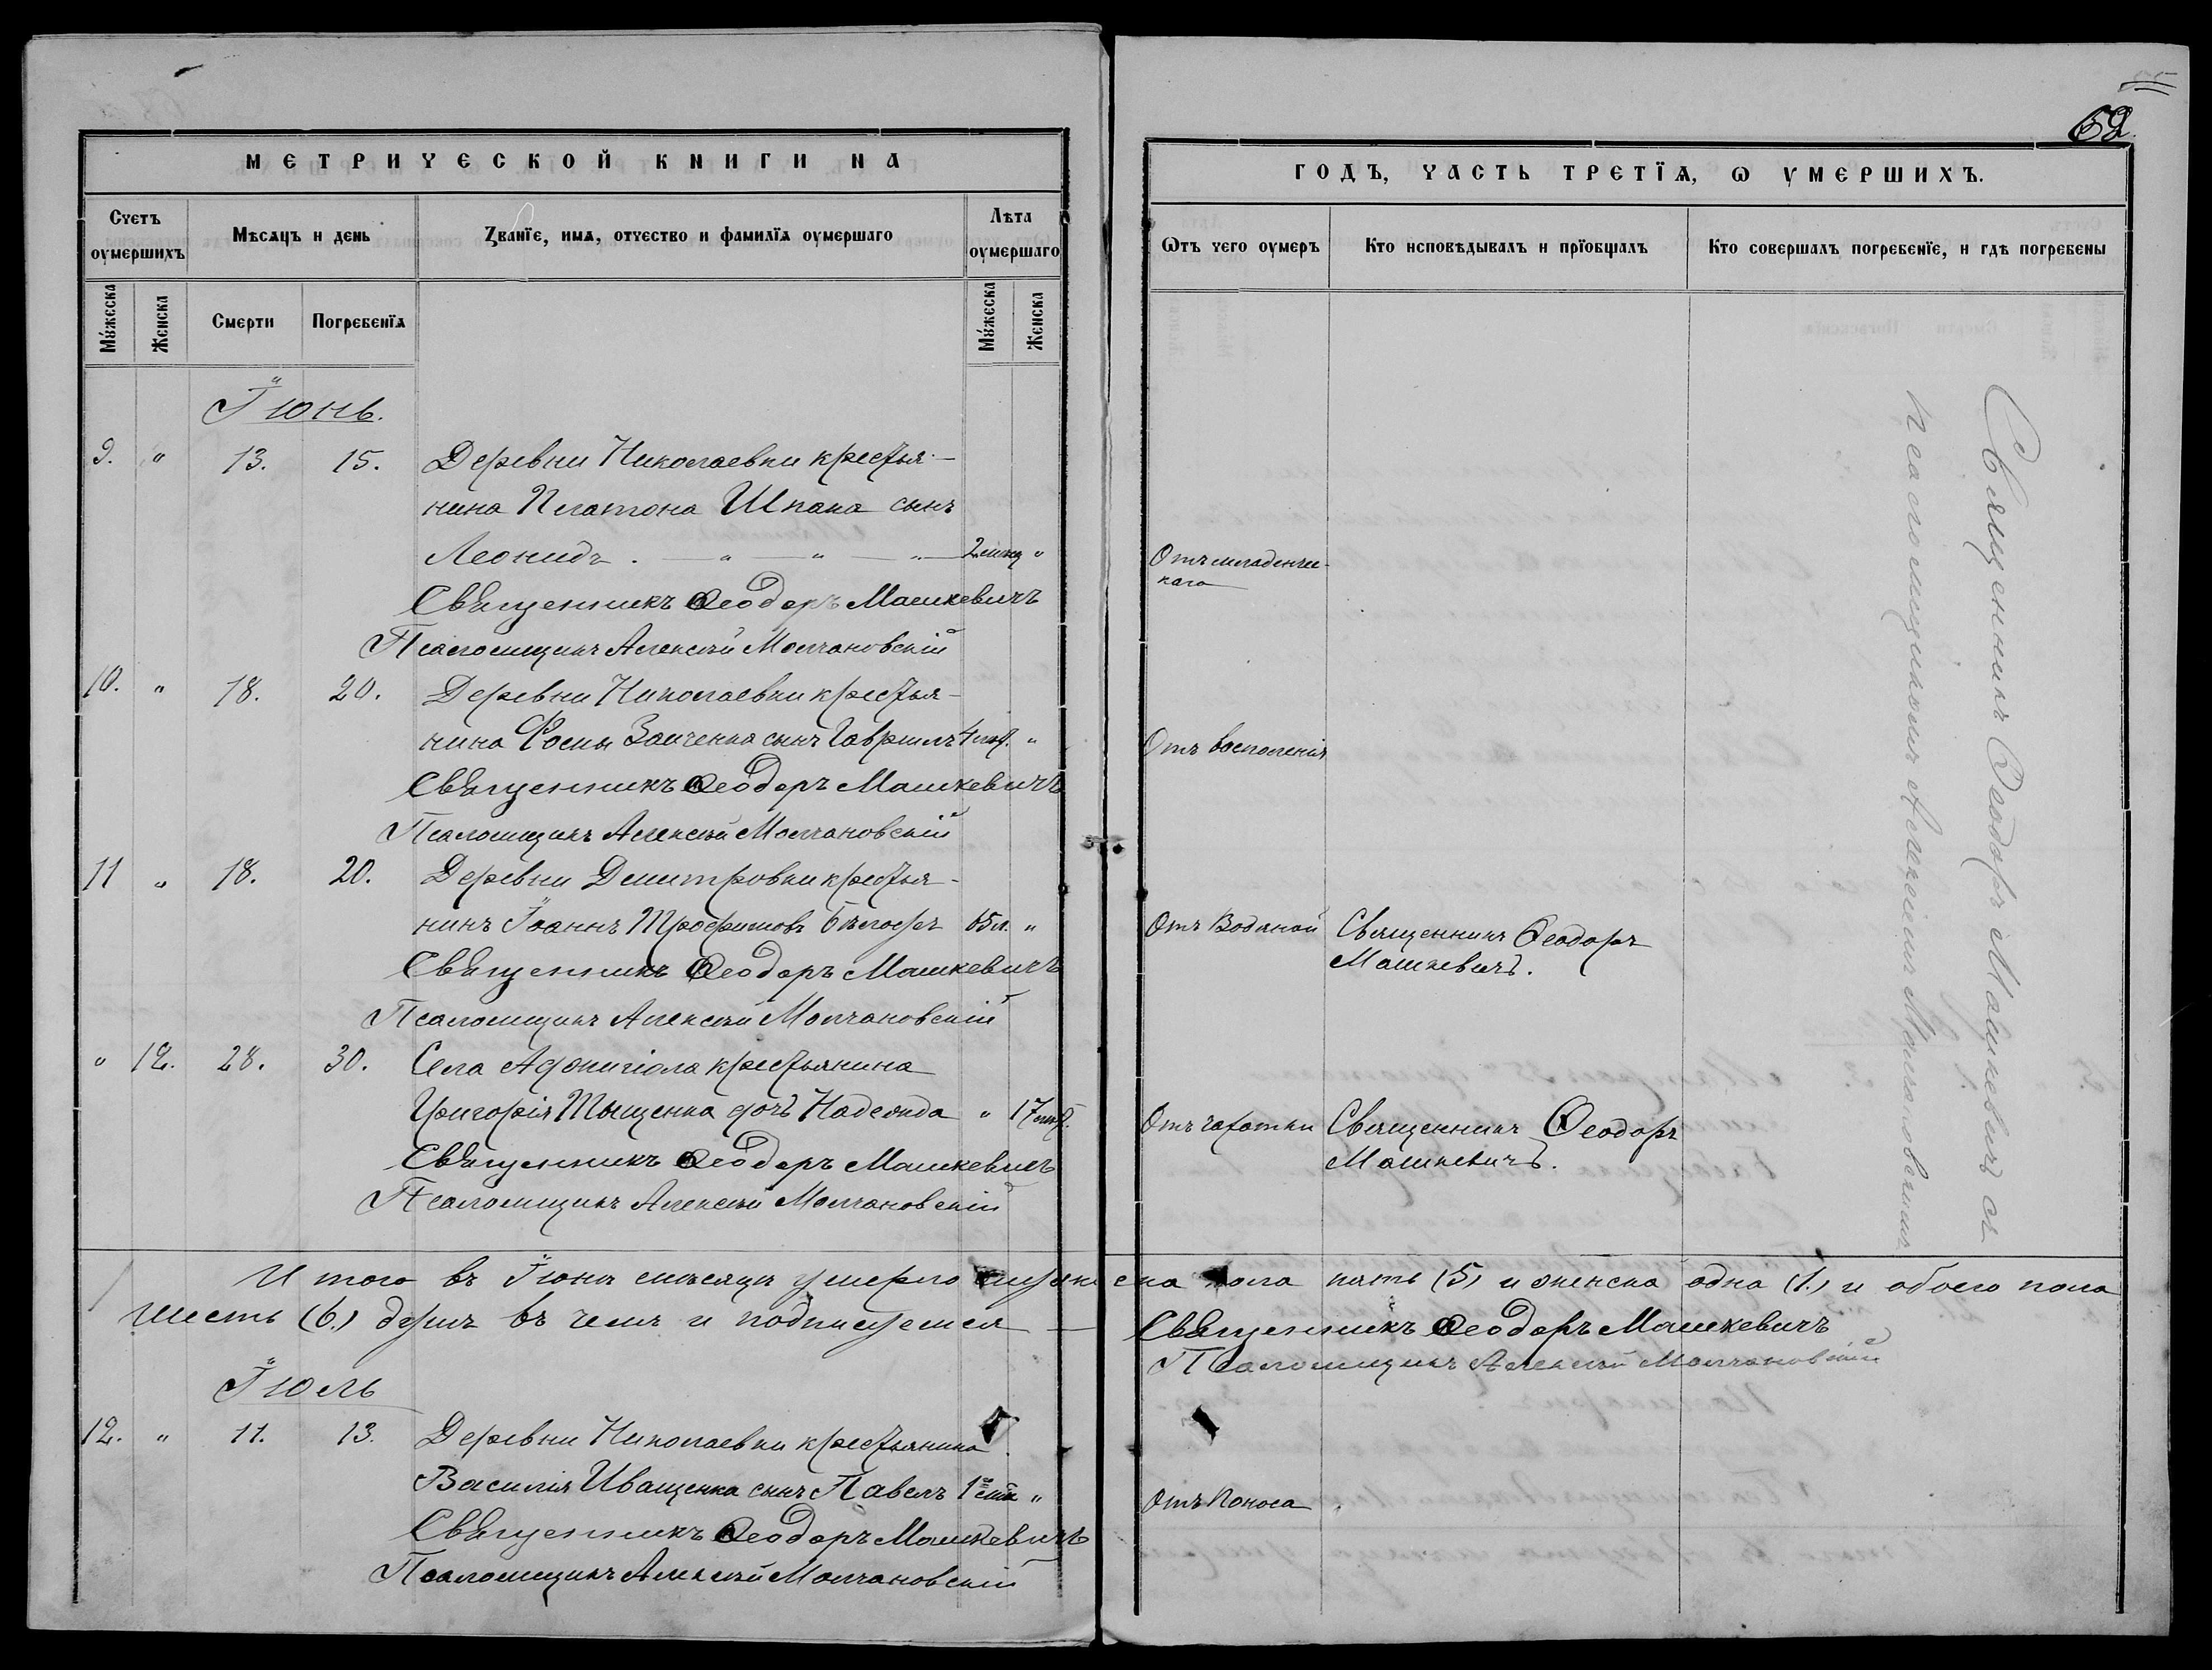 МЕТРИЧЕСКОЙ КНИГИ НА
Счетъ оумершихъ
Мѣсяцъ и день
Званїе, имѧ, отчество и фамилїѧ оумершаго
Лѣта оумершаго
Мꙋжеска
Женска
Смерти
Погребенїѧ
Мꙋжеска
Женска
Іюнь.
9. " 13. 15. Деревни Николаевки крестья-
нина Платона Шпака сынъ
Леонидъ . — " — " — " — 2 мѣц "
Священникъ Ѳеодоръ Машкевичъ
Псаломщикъ Алексѣй Молчановскій
10. " 18. 20. Деревни Николаевки крестья-
нина Ѳомы Заиченка сынъ Гавріилъ "
Священникъ Ѳеодоръ Машкевичъ
Псаломщикъ Алексѣй Молчановскій
11 " 18. 20. Деревни Димитровки крестья-
нинъ Іоаннъ Трофимовъ 65 л. "
Священникъ Ѳеодоръ Машкевичъ
Псаломщикъ Алексѣй Молчановскій
" 12. 28. 30. Села крестьянина
Григорія Тыщенка дочь Надежда " 17
Священникъ Ѳеодоръ Машкевичъ
Псаломщикъ Алексѣй Молчановскій
Итого въ Іюнѣ мѣсяцѣ умерло мужеска пола пять (5) и женска одна (1.) и обоего пола
шесть (6.) душъ въ чемъ и подписуемся —
Священникъ Ѳеодоръ Машкевичъ
Псаломщикъ Алексѣй Молчановскій
Іюль
12. " 11. 13. Деревни Николаевки крестьянина
Василія Иващенка сынъ Павелъ 1 "
Священникъ Ѳеодоръ Машкевичъ
Псаломщикъ Алексѣй Молчановскій
62
ГОДЪ, ЧАСТЬ ТРЕТЇѦ, Ѡ УМЕРШИХЪ.
Ѿтъ чего оумеръ
Кто исповѣдывалъ и прїобщалъ
Кто совершалъ погребенїе, и гдѣ погребены
Отъ младенчес-
каго
Отъ воспаленія
Отъ Водяной Священникъ Ѳеодоръ
Машкевичъ.
Отъ чахотки Священникъ Ѳеодоръ
Машкевичъ.
Отъ поноса
Священникъ Ѳеодоръ Машкевичъ съ
псаломщикомъ Алексѣемъ Молчановскимъ